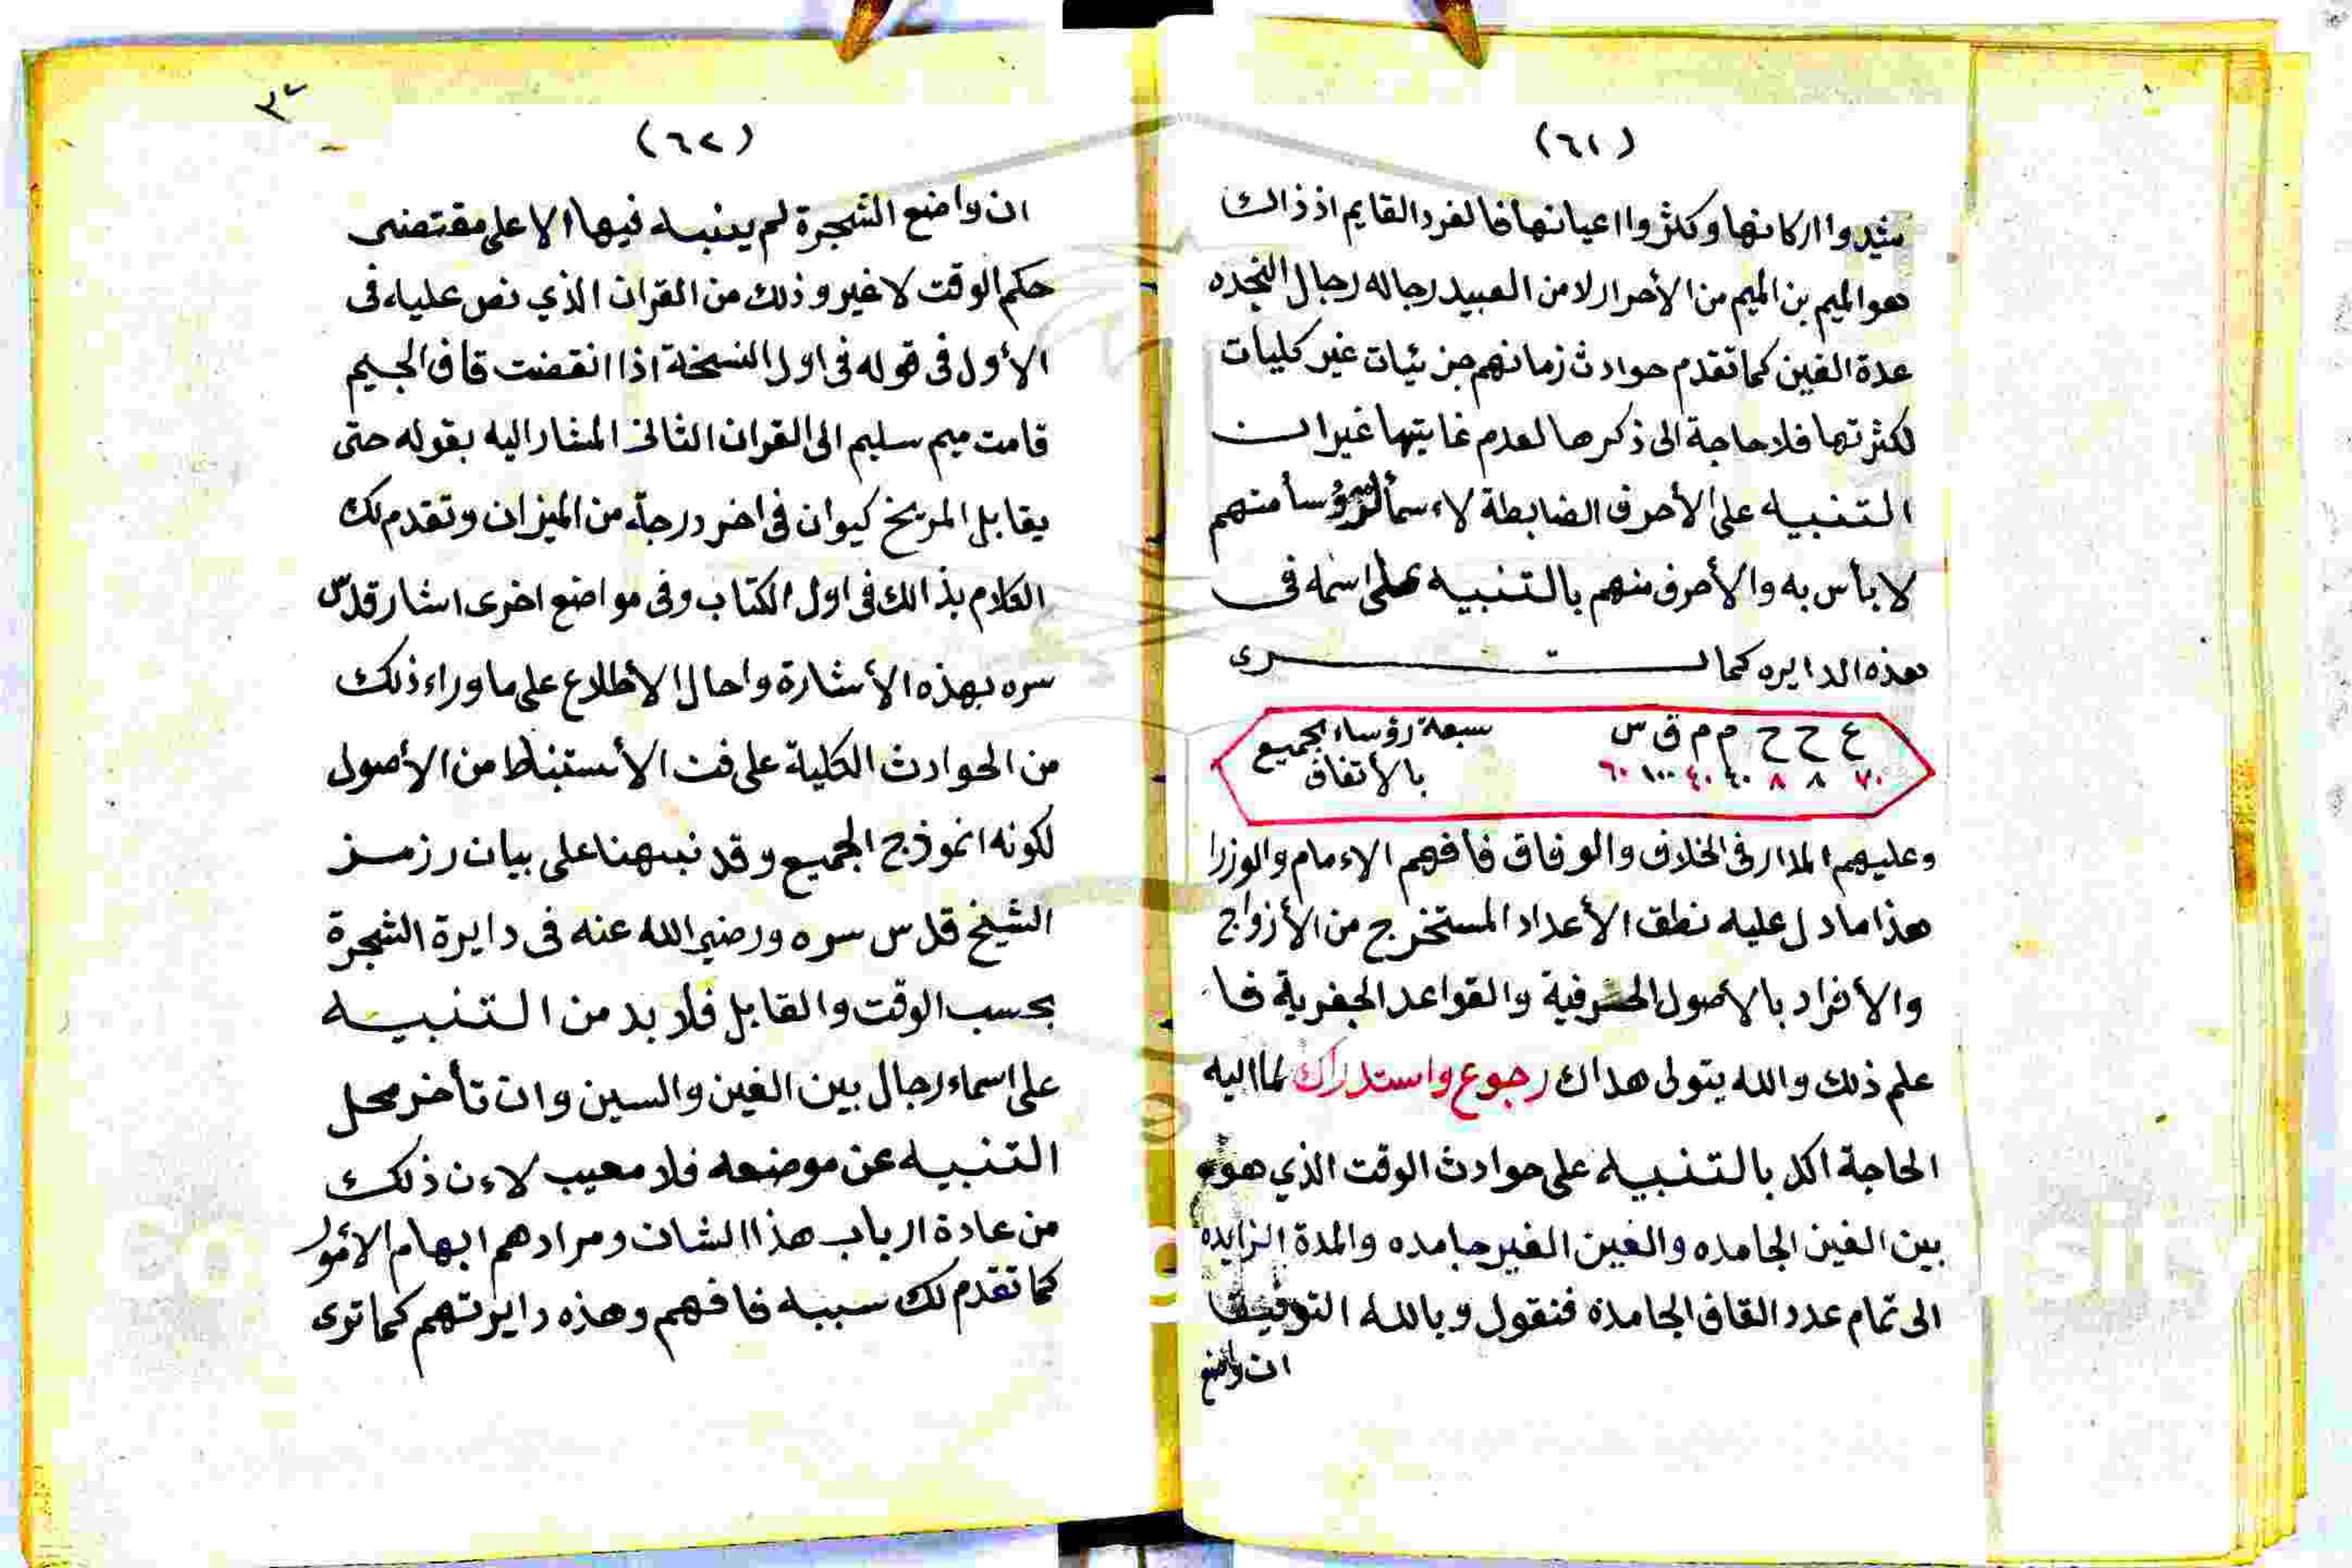 (٦١)
شيدوا اركانها وكثروا اعيانها فالفرد القايم اذ ذاك
هو الميم بن الميم من الأحرار لا من العبيد رجاله رجال النجده
عدة الغين كما تقدم حوادث زمانهم جزئيات غير كليات
لكثرتها فلا حاجة الى ذكرها لعدم غايتها غير ان
التنبيه على الأحرف الضابطة لاءسما الرؤسا منهم
لا بأس به والأحرف منهم بالتنبيه على اسمه فى
هذه الدايره كما ترى
ع ح ح م م ق س
٧٠ ٨ ٨ ٤٠ ٤٠ ١٠٠ ٦٠
سبعة رؤساء الجميع
بالأتفاق
وعليهم المدار فى الخلاف والوفاق فافهم الاءمام والوزرا
هذا ما دل عليه نطق الأعداد المستخرج من الأزواج
والأفراد بالأصول الحرفية والقواعد الجفرية فا
علم ذلك والله يتولى هداك رجوع واستدراك لما اليه
الحاجة اكد بالتنبيه على حوادث الوقت الذي هو
بين الغين الجامده والغين الغير جامده والمدة الزايده
الى تمام عدد القاف الجامدة فنقول وبالله التوفيق
ان واضع
٣٢
(٦٢)
ان واضع الشجرة لم ينبه فيها الا على مقتضى
حكم الوقت لا غير وذلك من القران الذي نص عليه فى
الأول فى قوله فى اول النسخة اذا انقضت قاف الجيم
قامت ميم سليم الى القران الثانى المشار اليه بقوله حتى
يقابل المريخ كيوان فى اخر درجة من الميزان وتقدم لك
الكلام بذالك فى اول الكتاب وفى مواضع اخرى اشار قدس
سره بهذه الأشارة واحال الاطلاع على ما وراء ذلك
من الحوادث الكلية على فت الأستنباط من الأصول
لكونه انموذج الجميع وقد نبهنا على بيان رزمز
الشيخ قدس سره ورضي الله عنه فى دايرة الشجرة
بحسب الوقت والقابل فلا بد من التنبيه
على اسماء رجال بين الغين والسين وان تأخر محل
التنبيه عن موضعه فلا معيب لاءن ذلك
من عادة ارباب هذا الشان ومرادهم ابهام الأمور
كما تقدم لك سببه فافهم وهذه دايرتهم كما ترى